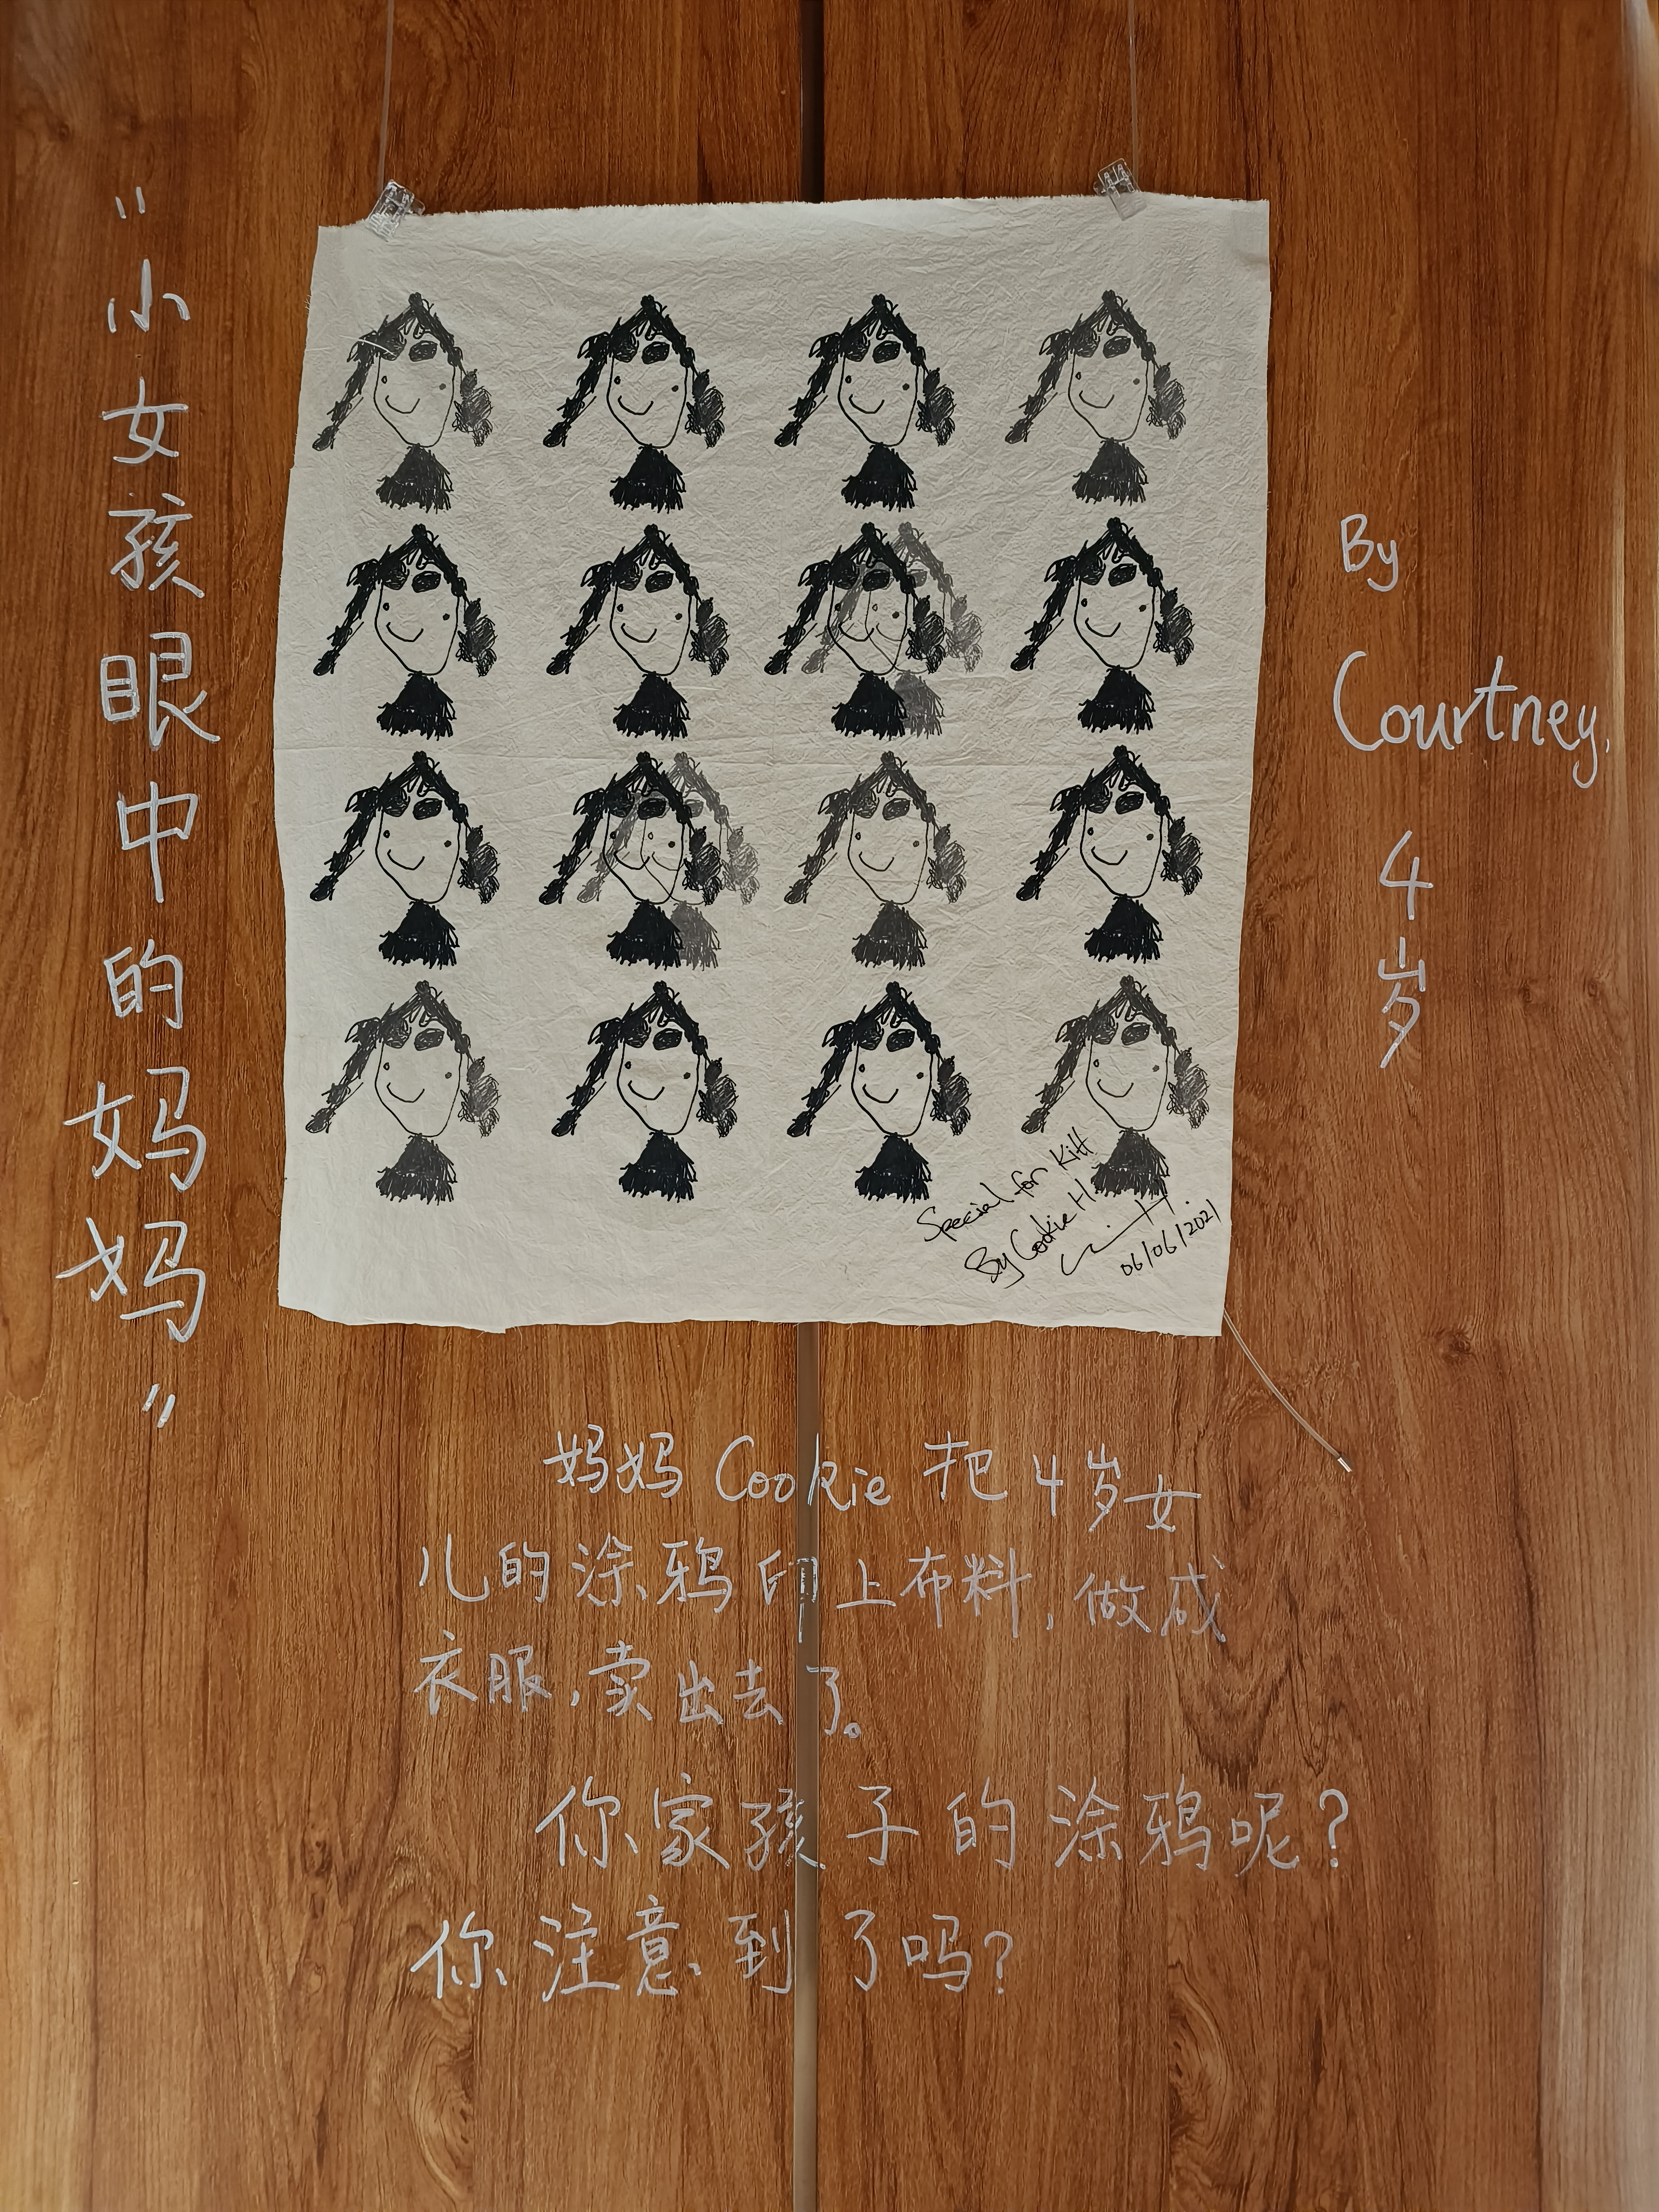 "小女孩眼中的妈妈"
By
Courtney.
4岁
Special for Kitt
By Cookie H.
06/06/2021
妈妈 Cookie 把4岁女
儿的涂鸦印上布料,做成
衣服,卖出去了。
你家孩子的涂鸦呢?
你注意到了吗?